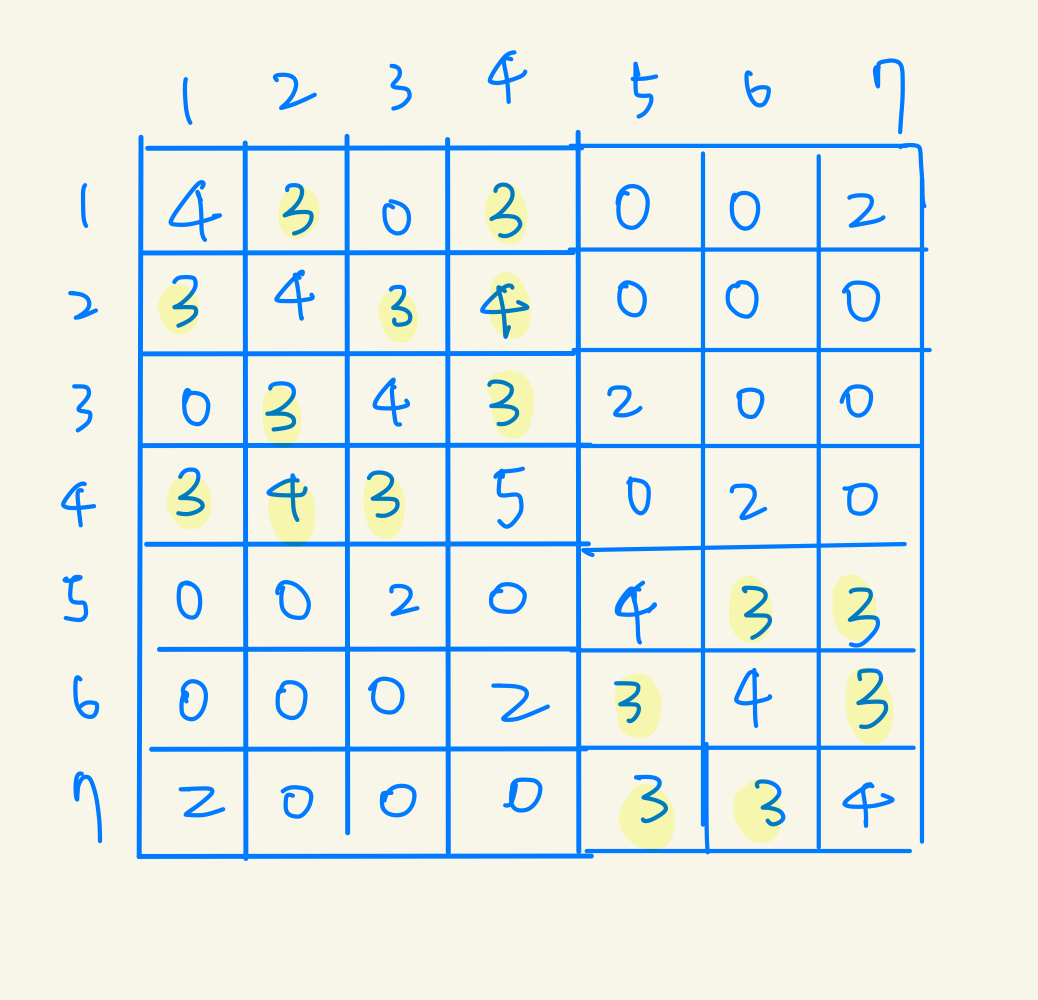 1 2 3 4 5 6 7
1 4 3 0 3 0 0 2
2 3 4 3 4 0 0 0
3 0 3 4 3 2 0 0
4 3 4 3 5 0 2 0
5 0 0 2 0 4 3 3
6 0 0 0 2 3 4 3
7 2 0 0 0 3 3 4